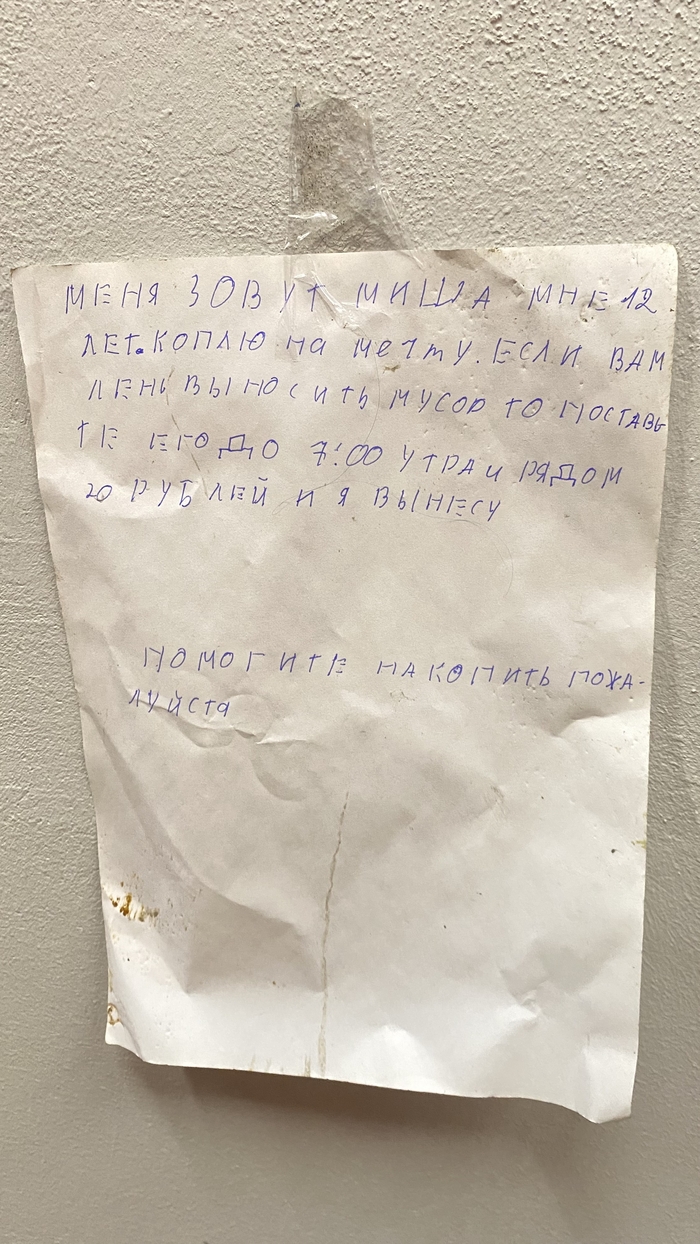 МЕНЯ ЗОВУТ МИША МНЕ 12
ЛЕТ. КОПЛЮ НА МЕЧТУ. ЕСЛИ ВАМ
ЛЕНЬ ВЫНОСИТЬ МУСОР ТО ПОСТАВЬ
ТЕ ЕГО ДО 7:00 УТРА И РЯДОМ
20 РУБЛЕЙ И Я ВЫНЕСУ
ПОМОГИТЕ НАКОПИТЬ ПОЖА-
ЛУЙСТА